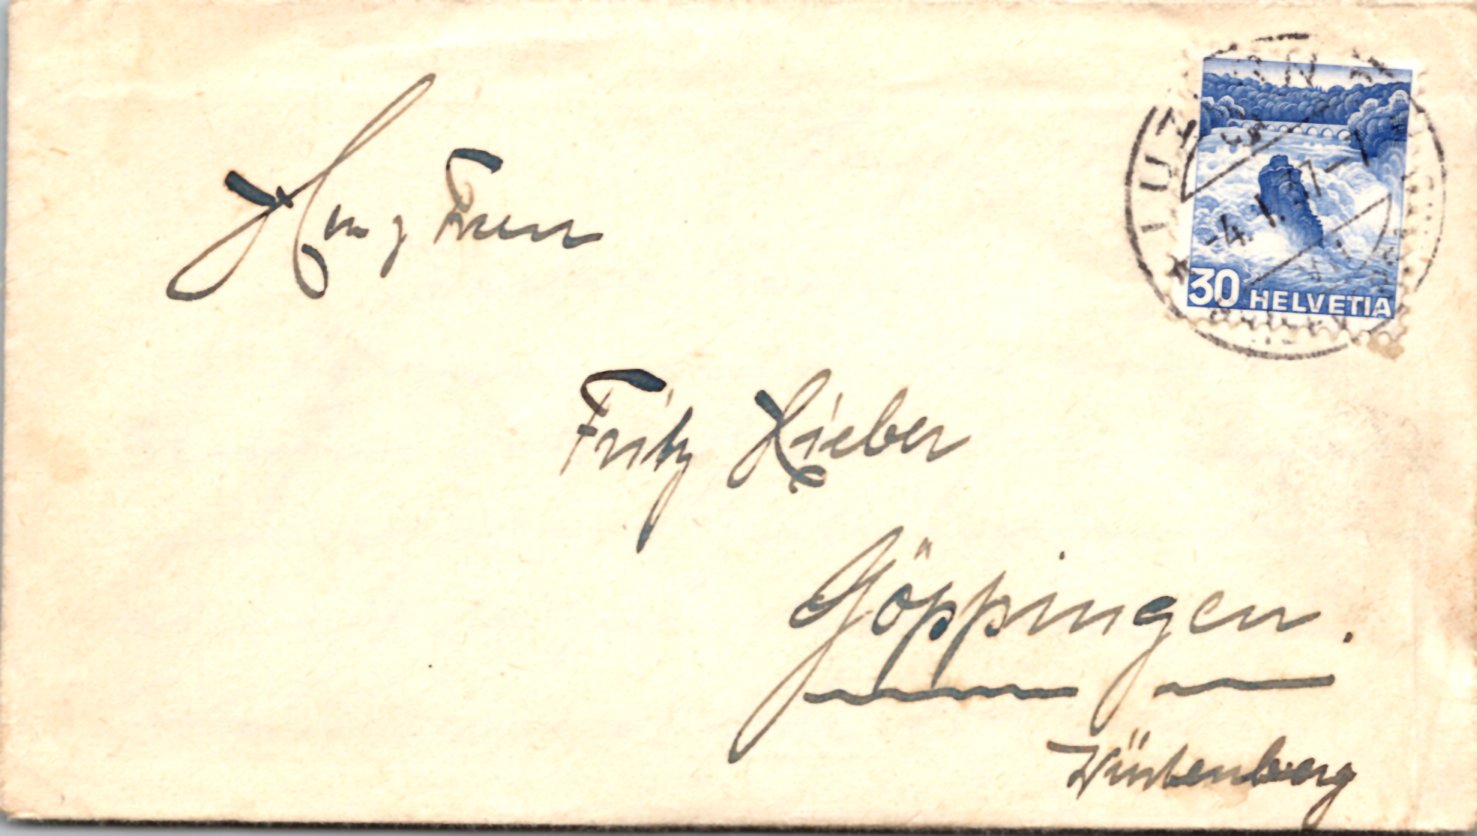 LUZERN
-4. I. 37-7
30 HELVETIA
Frau
Fritz Hieber
Göppingen.
Würtenberg